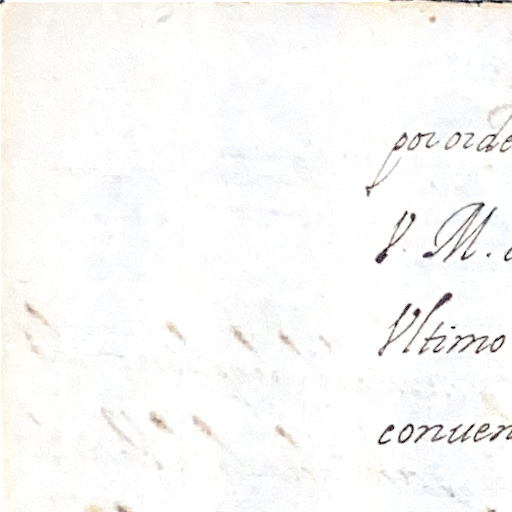 por orde
V. M.
Vltimo
conuen